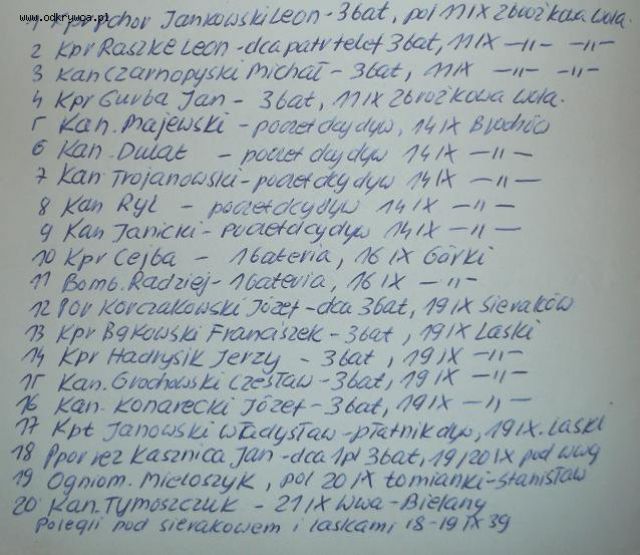 www.odkrywca.pl
1 Kpr pchor Jankowski Leon - 3bat, pol 11 IX Zbrożkowa Wola.
2 Kpr Raszke Leon - dca patr telef 3bat, 11 IX -„- -„-
3 Kan Czarnopyski Michał - 3bat, 11 IX -„- -„-
4 Kpr Gurba Jan - 3bat, 11 IX Zbrożkowa Wola.
5 Kan. Majewski - poczet dcy dyw, 14 IX Brochów
6 Kan. Dulat - poczet dcy dyw 14 IX -„-
7 Kan Trojanowski - poczet dcy dyw 14 IX -„-
8 Kan Ryl - poczet dcy dyw 14 IX -„-
9 Kan Janicki - poczet dcy dyw 14 IX -„-
10 Kpr Cejba - 1 bateria, 16 IX Górki
11 Bomb. Radziej - 1 bateria, 16 IX -„-
12 Por Korczakowski Józef - dca 3bat, 19 IX Sieraków
13 Kpr Bąkowski Franciszek - 3bat, 19 IX Laski
14 Kpr Hadrysik Jerzy - 3bat, 19 IX -„-
15 Kan. Grochowski Czesław - 3bat, 19 IX -„-
16 Kan. Konarecki Józef - 3bat, 19 IX -„-
17 Kpt Janowski Władysław - płatnik dyw, 19 IX. Laski
18 Ppor rez Kasznica Jan - dca 1pl 3bat, 19/20 IX pod wwą
19 Ogniom. Mieloszyk, pol 20 IX Łomianki - Stanisław
20 Kan. Tymoszczuk - 21 IX Wwa - Bielany
Polegli pod Sierakowem i Laskami 18-19 IX 39